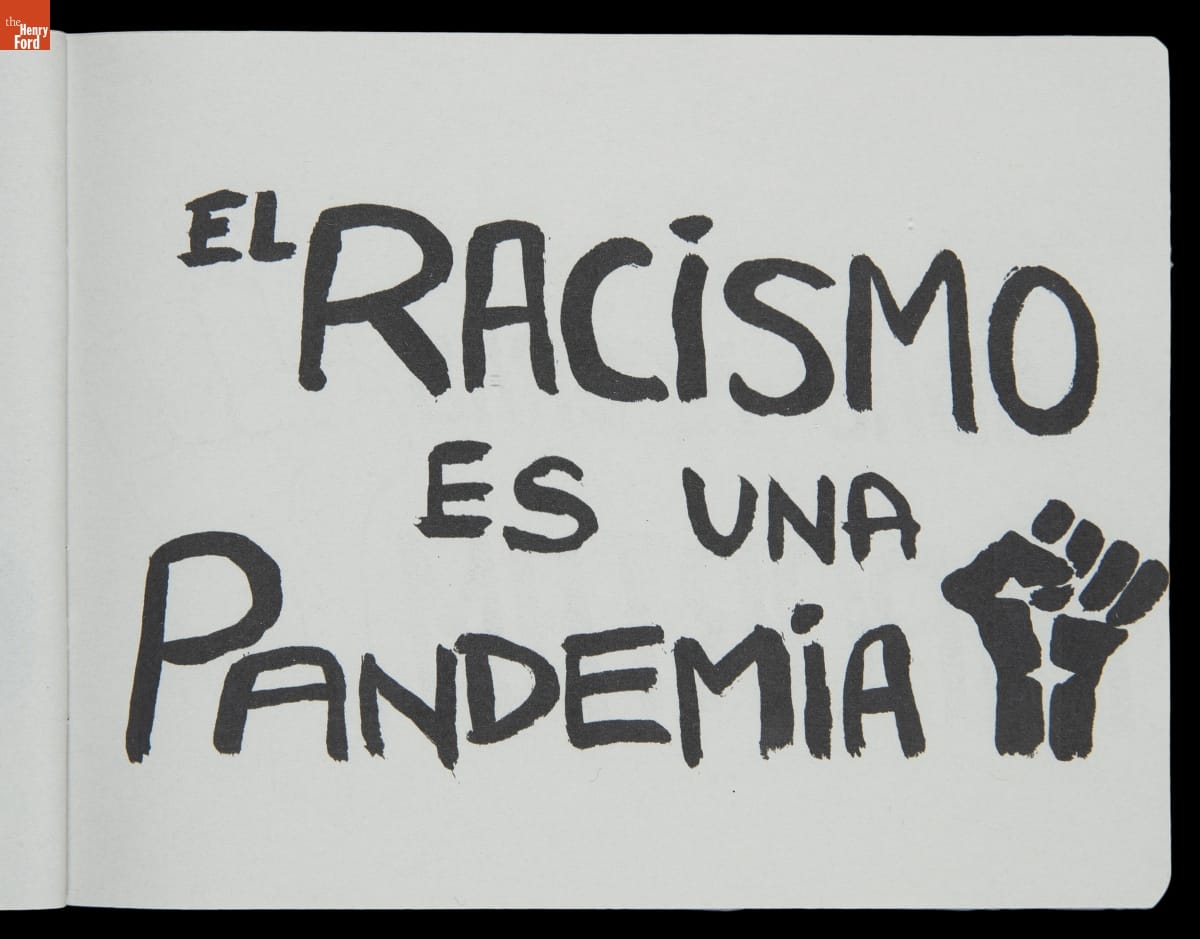 the
Henry
Ford
EL RACiSMO
ES UNA
PANDEMiA